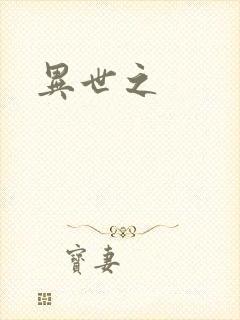 異世之
寶妻